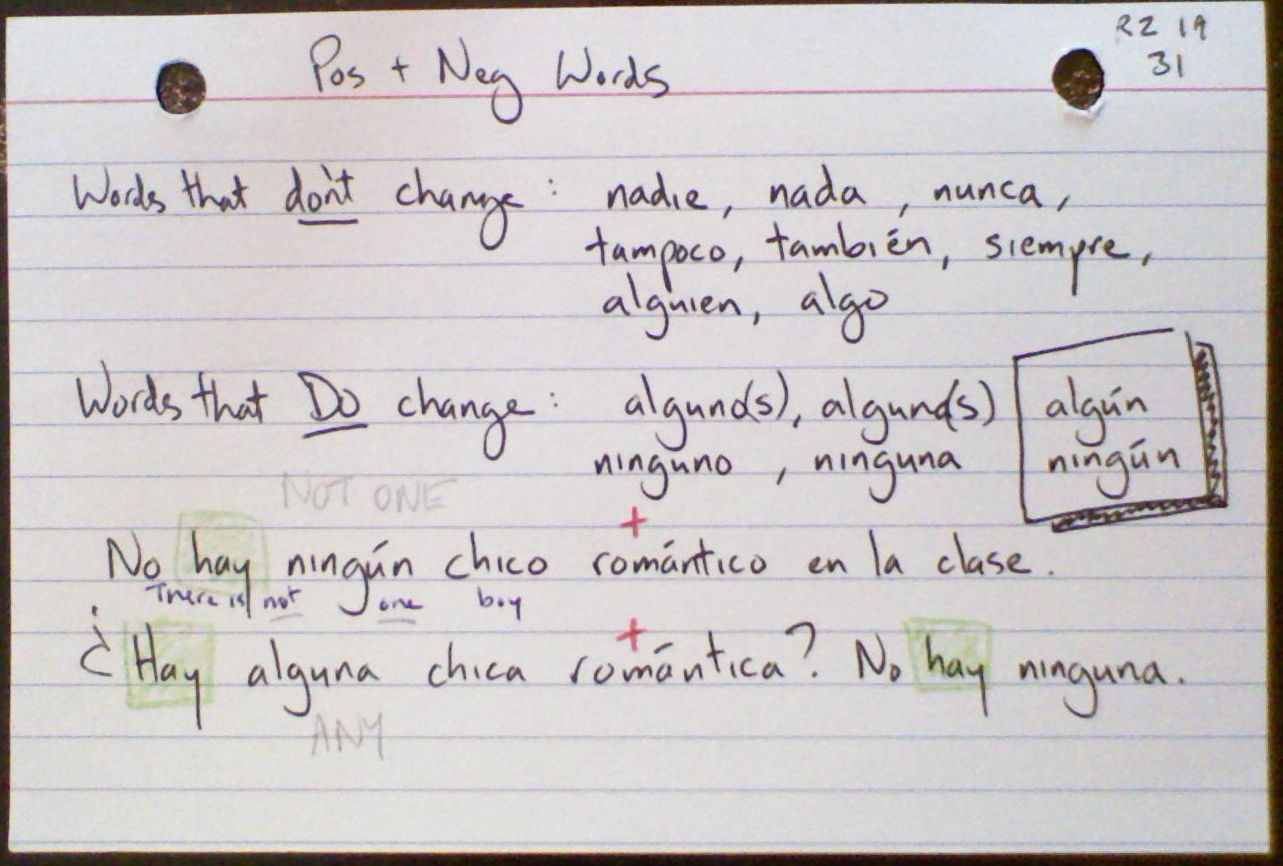 R2 19
31
Pos + Neg Words
Words that don't change : nadie, nada, nunca,
tampoco, también, siempre,
alguien, algo
Words that DO change : alguno(s), alguna(s) algún
ninguno, ninguna ningún
NOT ONE
+
No hay ningún chico romántico en la clase.
There is not one boy
+
¿Hay alguna chica romántica? No hay ninguna.
ANY